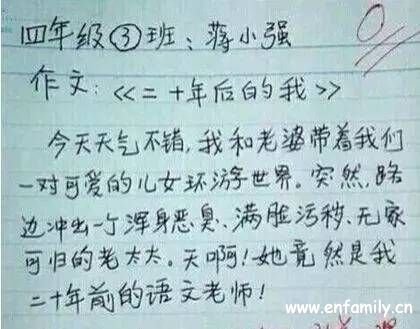 四年级③班：蒋小强
0
作文：《二十年后的我》
今天天气不错，我和老婆带着我们
一对可爱的儿女环游世界。突然，路
边冲出一个浑身恶臭、满脸污秽、无家
可归的老太太。天啊！她竟然是我
二十年前的语文老师！
www.enfamily.cn